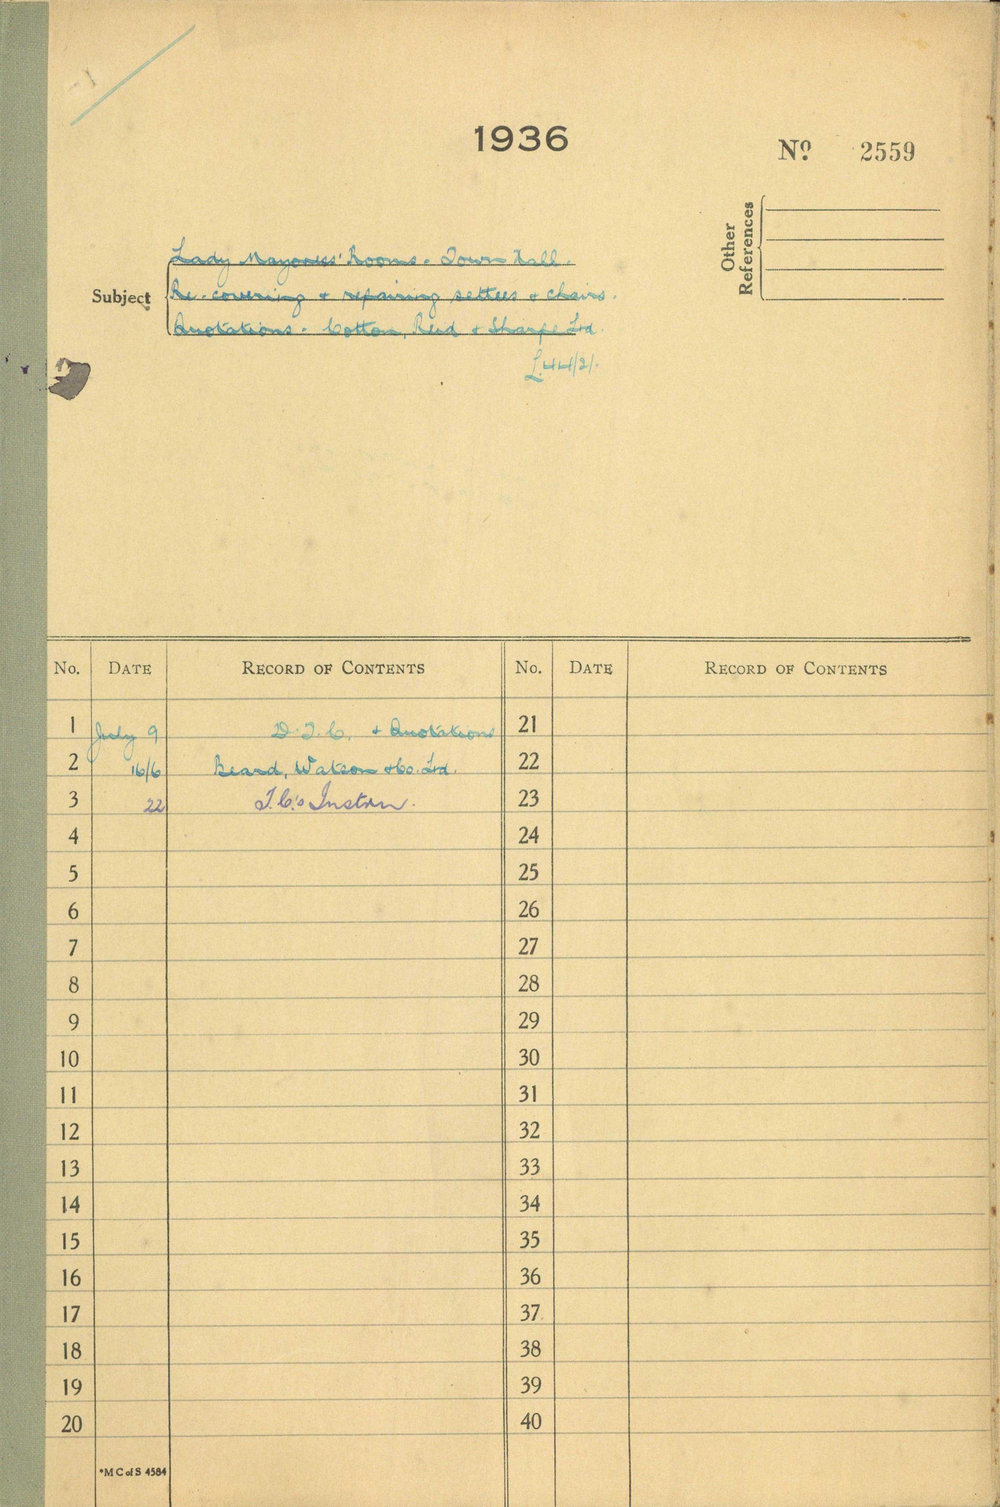 1936
No. 2559
Other References
Subject
Lady Mayoress' Rooms - Town Hall.
Re-covering & repairing settees & chairs.
Quotations - Cotton, Reid & Sharpe Ltd.
£44/2/-
No. DATE RECORD OF CONTENTS No. DATE RECORD OF CONTENTS
1 July 9 D.T.C. & Quotations 21
2 16/6 Beard, Watson & Co. Ltd. 22
3 22 T.C.'s Instrn. 23
4 24
5 25
6 26
7 27
8 28
9 29
10 30
11 31
12 32
13 33
14 34
15 35
16 36
17 37
18 38
19 39
20 40
*M C of S 4584